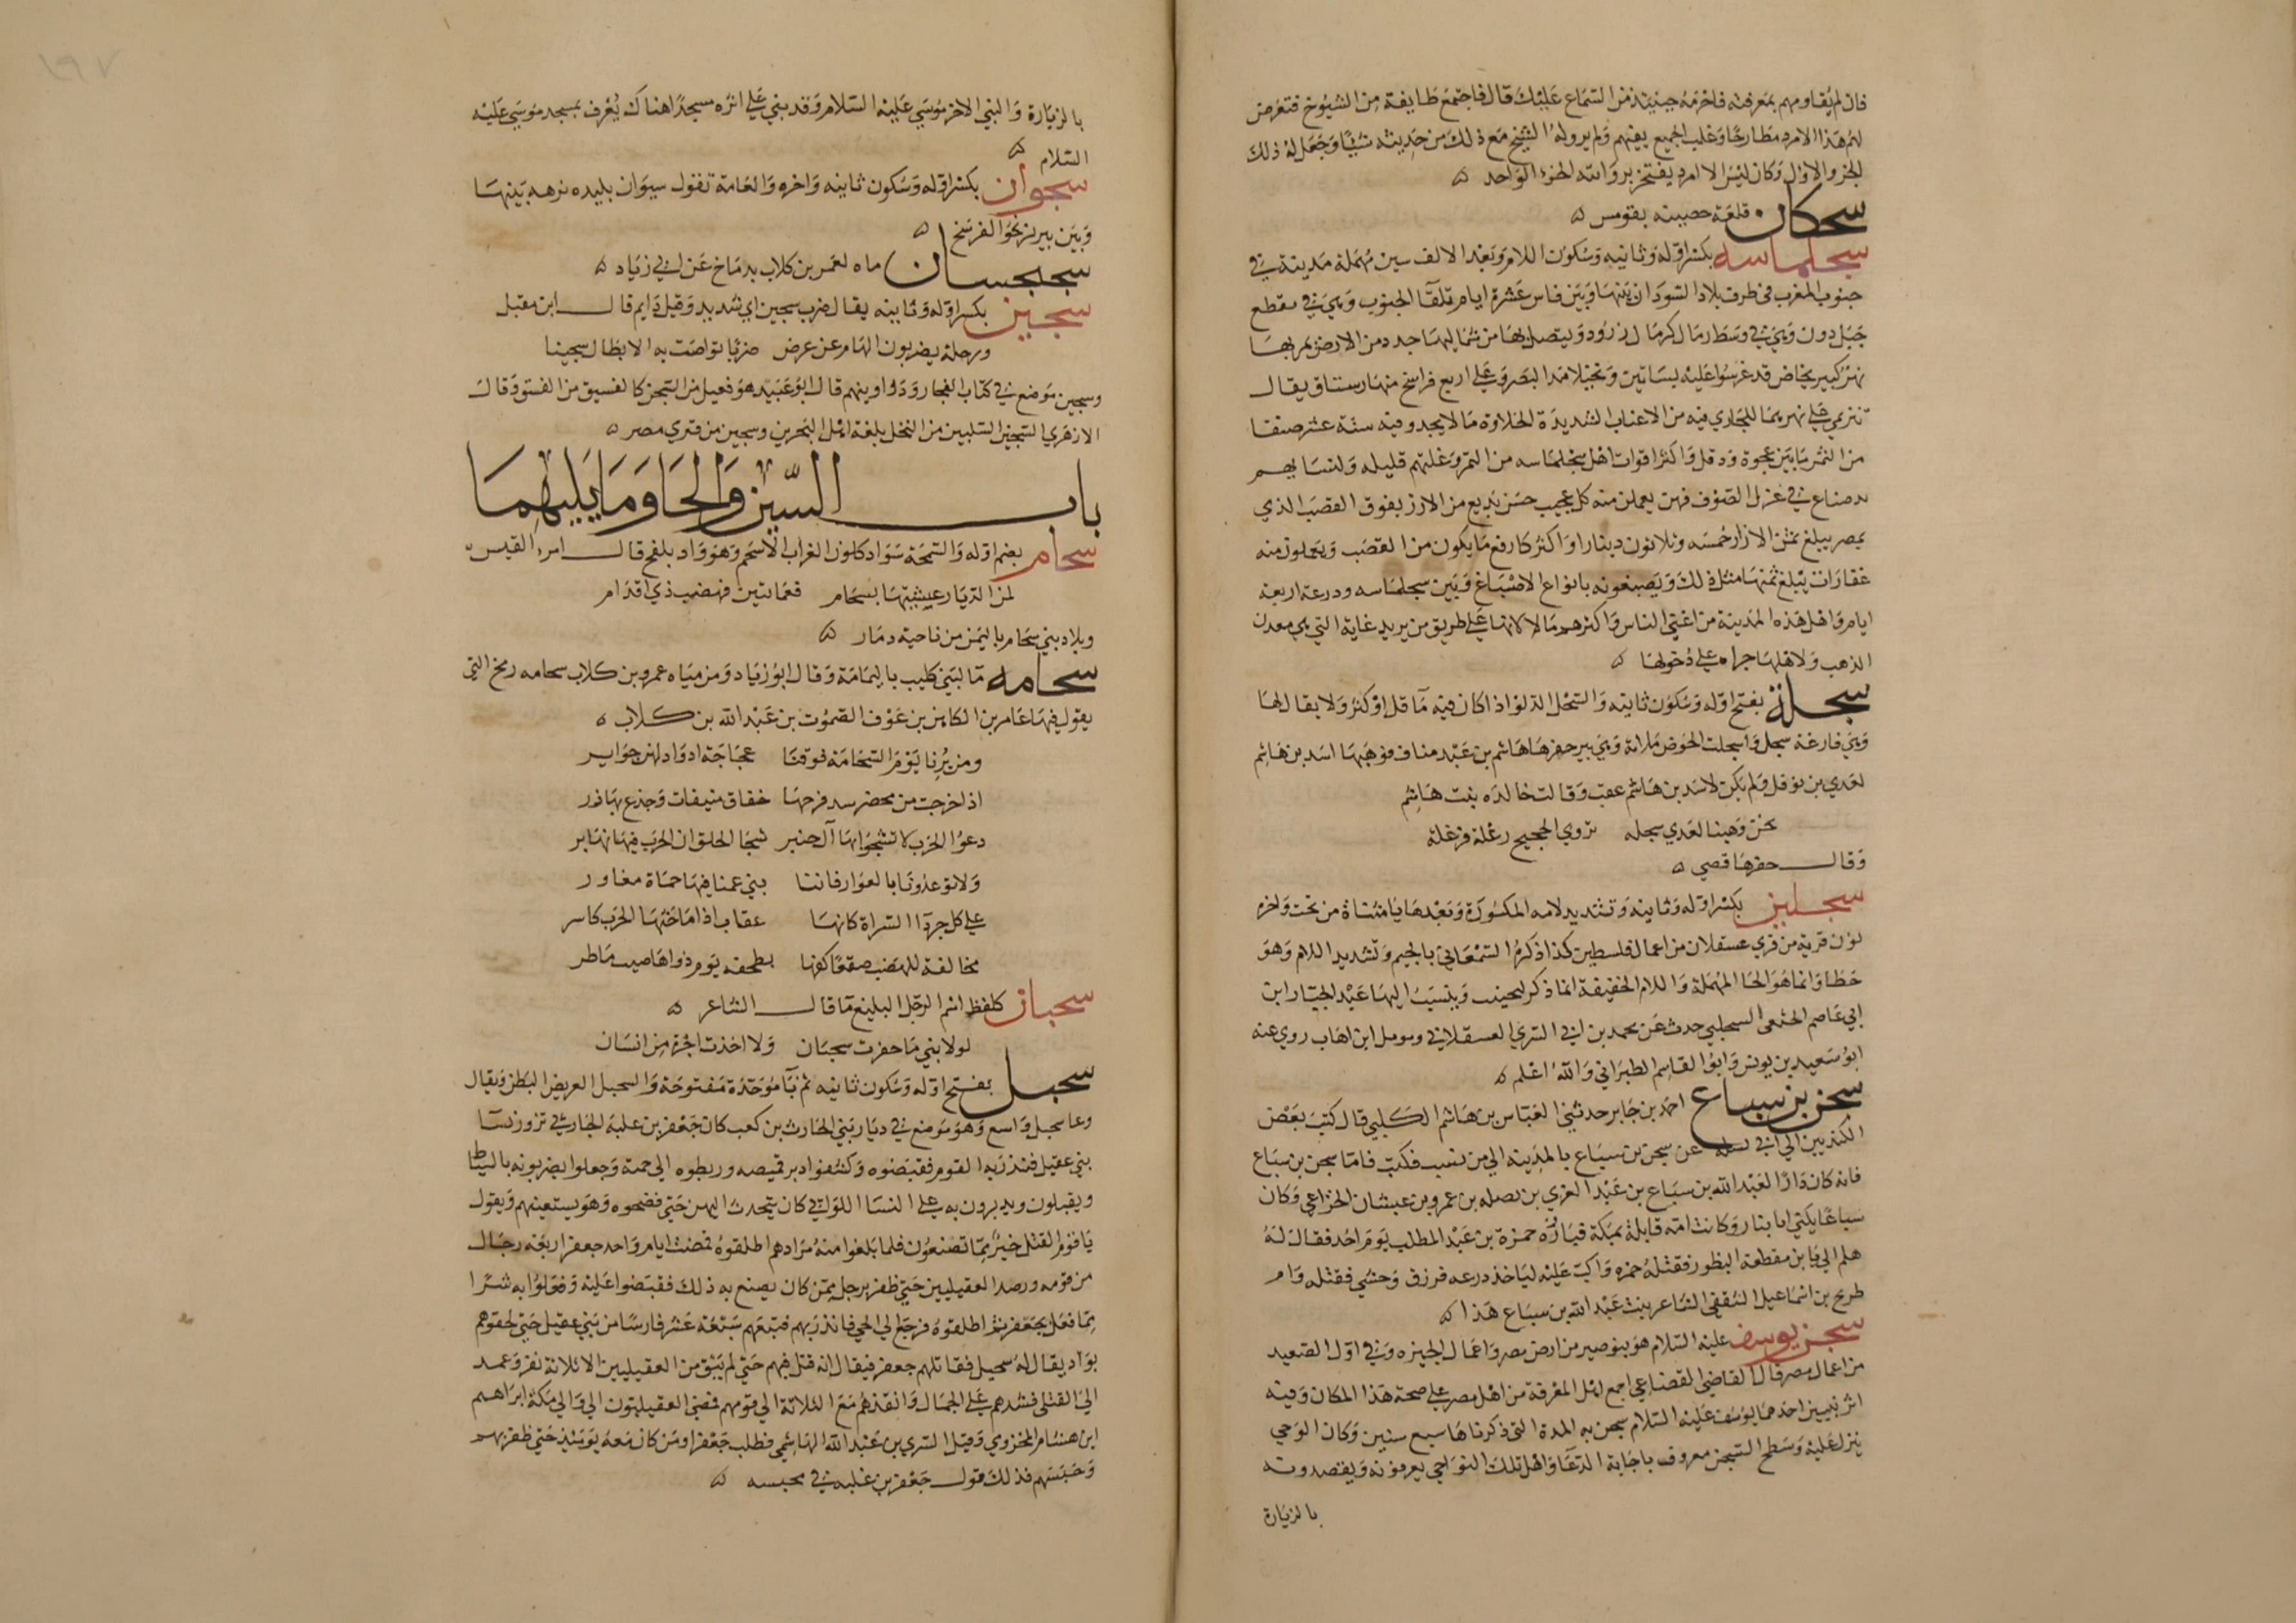 فان لم يقاومهم بمعرفته فاحرمه حينئذ من السماع عليك قال فاجتمع طايفة من الشيوخ فتعرض
لهم هذا الامرد مطارحا وغلب الجميع بفهمه ولم يرو له الشيخ مع ذلك من حديثه شيئا وجعل له ذلك
الجزو الاول وكان ليس الا امرد يفتخر برواية الجزء الواحد
سجكان قلعة حصينه بقومس
سجلماسه بكسر اوله وثانيه وسكون اللام وبعد الالف سين مهملة مدينة في
جنوب المغرب في طرف بلاد السودان بينها وبين فاس عشرة ايام تلقا الجنوب وهي في مقطع
جبل درن وهي في وسط رمال كرمال زرود ويتصل بها من شماليها جدد من الارض يمر بها
نهر كبير يخاض قد غرسوا عليه بساتين ونخيلا مدا البصر وعلى اربع فراسخ منها رستاق يقال
تنزمي على نهر بها للجاري فيه من الاعناب الشديدة الحلاوة ما لا يحد وفيه ستة عشر صنفا
من التمر ما بين عجوة ودقل واكثر اقوات اهل سجلماسه من التمر وغلتهم قليله ولنسايهم
يد صناع في غزل الصوف فهن يعملن منه كل عجيب حسن بديع من الازر يفوق القصب الذي
بمصر يبلغ ثمن الازار خمسه وثلاثون دينارا واكثر كارفع ما يكون من القصب ويعملون منه
غفارات يبلغ ثمنها مثل ذلك ويصبغونه بانواع الاصباغ وبين سجلماسه ودرعه اربعة
ايام واهل هذه المدينة من اغنى الناس واكثرهم مالا لانها على طريق من يريد غانة التي هي معدن
الذهب ولاهلها جراه على دخولها
سجلة بفتح اوله وسكون ثانيه والسجل الدلو اذا كان فيه ما قل او كثر ولا يقال لها
وهي فارغة سجل واسجلت الحوض ملاته وهي بير حفرها هاشم بن عبد مناف فوهبها اسد بن هاشم
لعدي بن نوفل ولم يكن لاسد بن هاشم عقب وقالت خالده بنت هاشم
نحن وهبنا لعدي سجله تروي الحجيج زغلة فزغلة
وقال حفرها قصي
سجلين بكسر اوله وثانيه وتشديد لامه المكسورة وبعدها يا مثناة من تحت واخره
نون قرية من قري عسقلان من اعمال فلسطين كذا ذكره السمعاني بالجيم وتشديد اللام وهو
خطا وانما هو الحا المهملة واللام الخفيفة انما ذكر ليجتنب وينسب اليها عبد الجبار ابن
ابي عاصم الخثعمي السجليني حدث عن محمد بن ابي السري العسقلاني ومومل ابن اهاب روي عنه
ابو سعيد بن يونس وابو القاسم الطبراني والله اعلم
سجن بن سباع احمد بن جابر حدثني العباس بن هاشم الكلبي قال كتب بعض
الكنديين الي ابي يسله عن سجن بن سباع بالمدينه الي من نسب فكتب فاما سجن بن سباع
فانه كان دارا لعبد الله بن سباع بن عبد العزي بن نصله بن عمرو بن غبشان الخزاعي وكان
سباع يكني ابا نيار وكانت امه قابلة بمكة فبارزه حمزة بن عبد المطلب يوم احد فقال له
هلم الي يا ابن مقطعة البظور فقتله حمزه واكب عليه لياخذ درعه فزرق وحشي فقتله وام
طريح بن اسماعيل الثقفي الشاعر بنت عبد الله بن سباع هذا
سجن يوسف عليه السلام هو ببوصير من ارض مصر واعمال الجيزه وفي اول الصعيد
من اعمال مصر قال القاضي القضاعي اجمع اهل المعرفة من اهل مصر على صحة هذا المكان وفيه
اثر نبيين احدهما يوسف عليه السلام سجن به المدة التي ذكرناها سبع سنين وكان الوحي
ينزل عليه وسطح السجن معروف باجابة الدعا واهل تلك النواحي يعرفونه ويقصدونه
بالزيارة
بالزيارة والنبي الاخر موسي عليه السلام وقد بني علي اثره مسجدا هناك يعرف بمسجد موسي عليه
السلام
سجوان بكسر اوله وسكون ثانيه واخره والعامة تقول سيوان بليده نزهه بينها
وبين تبريز نحو الفرسخ
سجلجسان ماه لعمر بن كلاب بدماخ عن ابي زياد
سجين بكسر اوله وثانيه يقال ضرب سجين اي شديد وقيل دايم قال ابن مقبل
ورجلة يضربون الهام عن عرض ضربا تواصت به الابطال سجينا
وسجين موضع في كتاب الفجار ودواوينهم قال ابو عبيد هو فعيل من السجن كالفسيق من الفسق وقال
الازهري السجين السلتين من النخل بلغة اهل البحرين وسجين من قري مصر
باب السين والحا وما يليهما
سحام بضم اوله والسحمة سواد كلون الغراب الاسحم وهو واد بفلج قال امرء القيس
لمن الديار عيشتها بسحام فعمايتين فهضب ذي اقدام
وبلاد بني سحام باليمن من ناحية ذمار
سحامه ما لبني كليب باليمامة وقال ابو زياد ومن مياه عمرو بن كلاب سحامه رمخ التي
يقول فيها عامر بن الكاهن بن عوف الصموت بن عبد الله بن كلاب
ومن يرنا يوم السحامة فوقنا عجاجة اذواد لهن حواير
اذا خرجت من محضر سد فرجها خفاف منيفات وجذع بهازر
دعوا الحرب لا تشجوا بها آل حنبر شجا الحلق ان الحرب فيها نهابر
ولا توعدونا بالغوار فاننا بني عمنا فيها حماة مغاور
علي كل جردا السراة كانها عقاب اذا ما حثها الحرب كاسر
مخالفة للهضب صقعا كونها بطخفه يوم ذو اهاضيب ماطر
سحبان كلفظ اسم الرجل البليغ ما قال الشاعر
لولا بني ما حفرت سحبان ولا اخذت اجرة من انسان
سحبل بفتح اوله وسكون ثانيه ثم با موحدة مفتوحة والسحبل العريض البطن ويقال
وعا سحبل واسع وهو موضع في ديار بني الحارث بن كعب كان جعفر بن علبة الحارثي تزور نسا
بني عقيل فنذر به القوم فقبضوه وكشفوا دبر قميصه وربطوه الي جمته وجعلوا يضربونه بالسياط
ويقبلون ويدبرون به علي النسا اللواتي كان يتحدث اليهن حتي فضحوه وهو يستعينهم ويقول
يا قوم القتل خير مما تصنعون فلما بلغوا منه مرادهم اطلقوه فمضت ايام واخد جعفر اربعة رجال
من قومه ورصد العقيليين حتي ظفر برجل ممن كان يصنع به ذلك فقبضوا عليه وفعلوا به شرا
مما فعل بجعفر ثم اطلقوه فرجع الي الحي فانذر بهم فتبعهم سبعة عشر فارسا من بني عقيل حتي لحقوهم
بواد يقال له سحبل فقاتلهم جعفر فيقال انه قتل فيهم حتي لم يبق من العقيليين الا ثلاثة نفر وعمد
الي القتلي فشدهم علي الجمال وانفذهم مع الثلاثة الي قومهم فمضي العقيليون الي والي مكة ابراهيم
ابن هشام المخزومي وقيل السري بن عبد الله الهاشمي فطلب جعفرا ومن كان معه يوميذ حتي ظفر بهم
وحبسهم فذلك قول جعفر بن علبه في محبسه
١٩٧